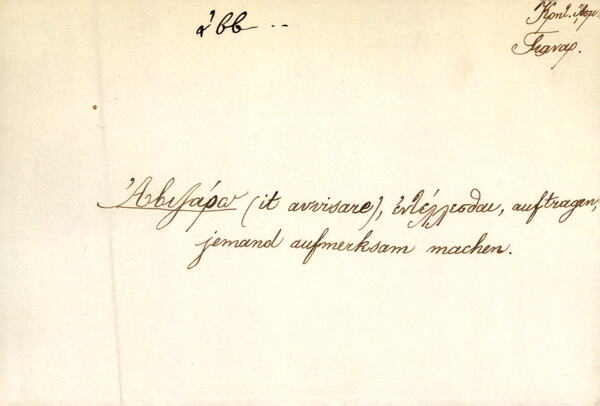 ἀββ ..
Κρήτ. Ἀφρ
Γιαναρ.
Ἀβιζάρω (it avvisare), ἐντέλλεσθαι, auftragen,
jemand aufmerksam machen.